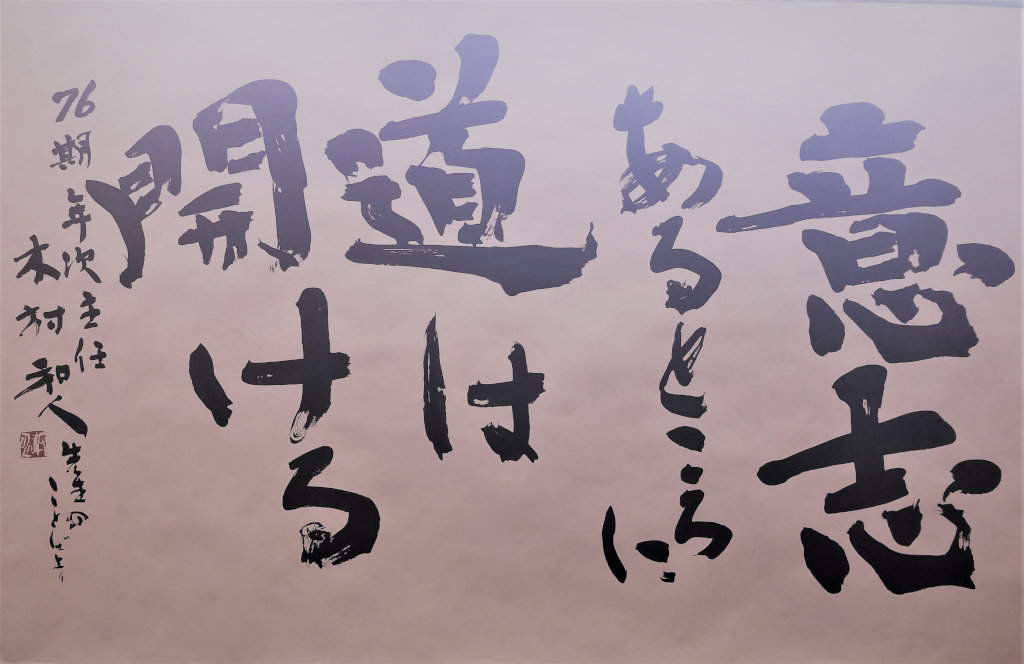 意志
あるところに
道は
開ける
76期 年次主任
木村 和人 先生の
ことばより